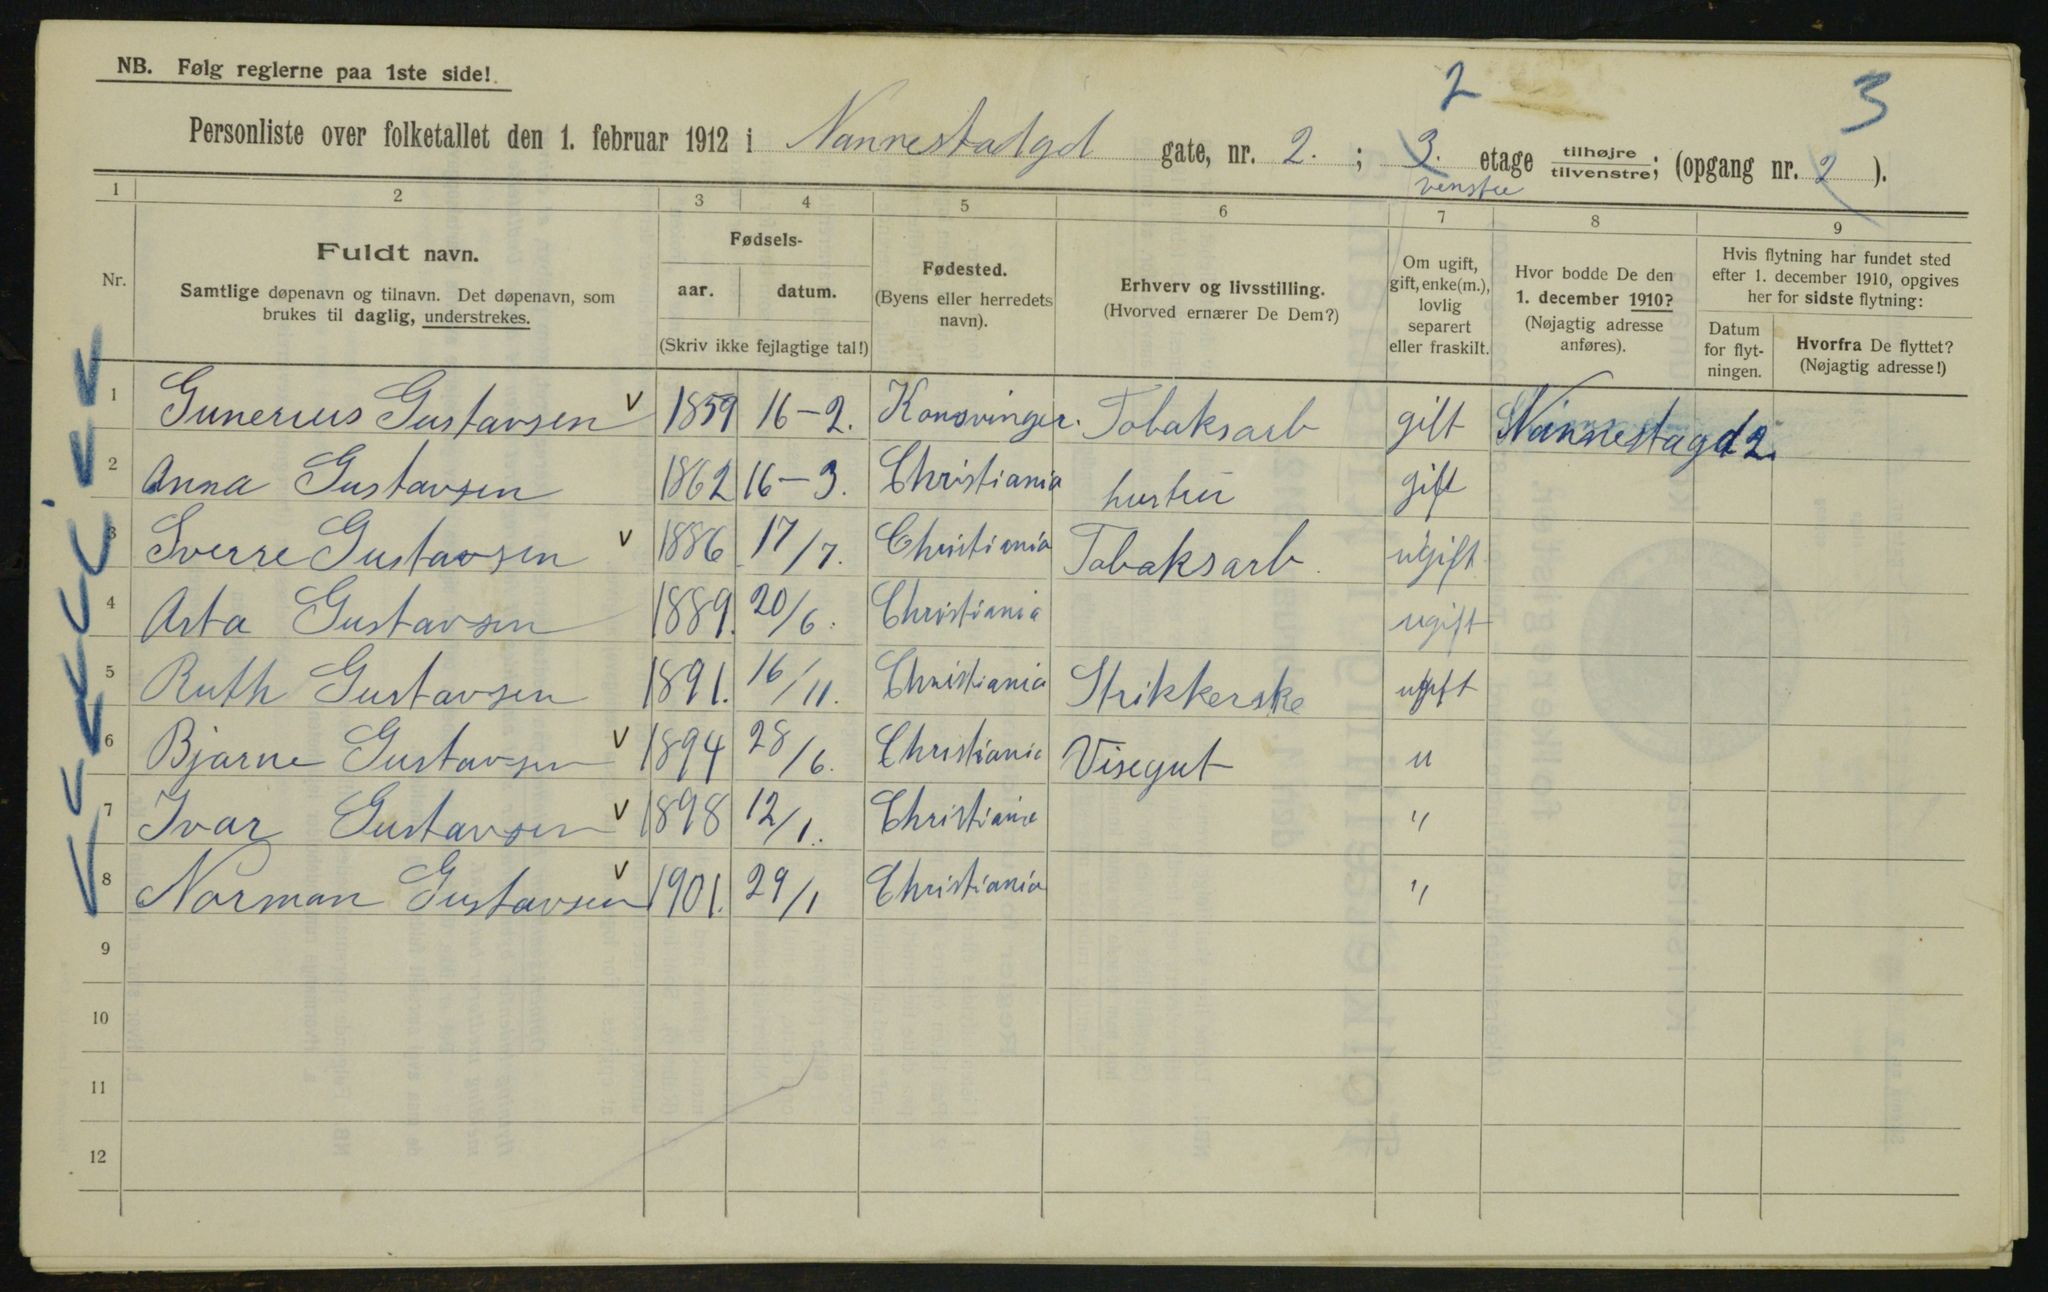 NB. Følg reglerne paa 1ste side!
2 3
Personliste over folketallet den 1. februar 1912 i Nannestadgd gate, nr. 2. ; 3. etage tilhøjre tilvenstre; (opgang nr. 2 ).
venstre
1 2 3 4 5 6 7 8 9
Nr.
Fuldt navn.
Samtlige døpenavn og tilnavn. Det døpenavn, som
brukes til daglig, understrekes.
Fødsels-
aar. datum.
(Skriv ikke fejlagtige tal!)
Fødested.
(Byens eller herredets
navn).
Erhverv og livsstilling.
(Hvorved ernærer De Dem?)
Om ugift,
gift, enke(m.),
lovlig
separert
eller fraskilt.
Hvor bodde De den
1. december 1910?
(Nøjagtig adresse
anføres).
Hvis flytning har fundet sted
efter 1. december 1910, opgives
her for sidste flytning:
Datum
for flyt-
ningen.
Hvorfra De flyttet?
(Nøjagtig adresse!)
1 Gunerius Gustavsen v 1859 16-2. Konsvinger. Tobaksarb gift Nannestagd 2.
2 Anna Gustavsen 1862 16-3. Christiania hustru gift
3 Sverre Gustavsen v 1886 17/7. Christiania Tobaksarb. ugift
4 Asta Gustavsen 1889. 20/6. Christiania ugift
5 Ruth Gustavsen 1891. 16/11. Christiania Strikkerske ugift
6 Bjarne Gustavsen v 1894 28/6. Christiania Visegut u
7 Ivar Gustavsen v 1898 12/1. Christiania "
8 Norman Gustavsen v 1901. 29/1 Christiania "
9
10
11
12